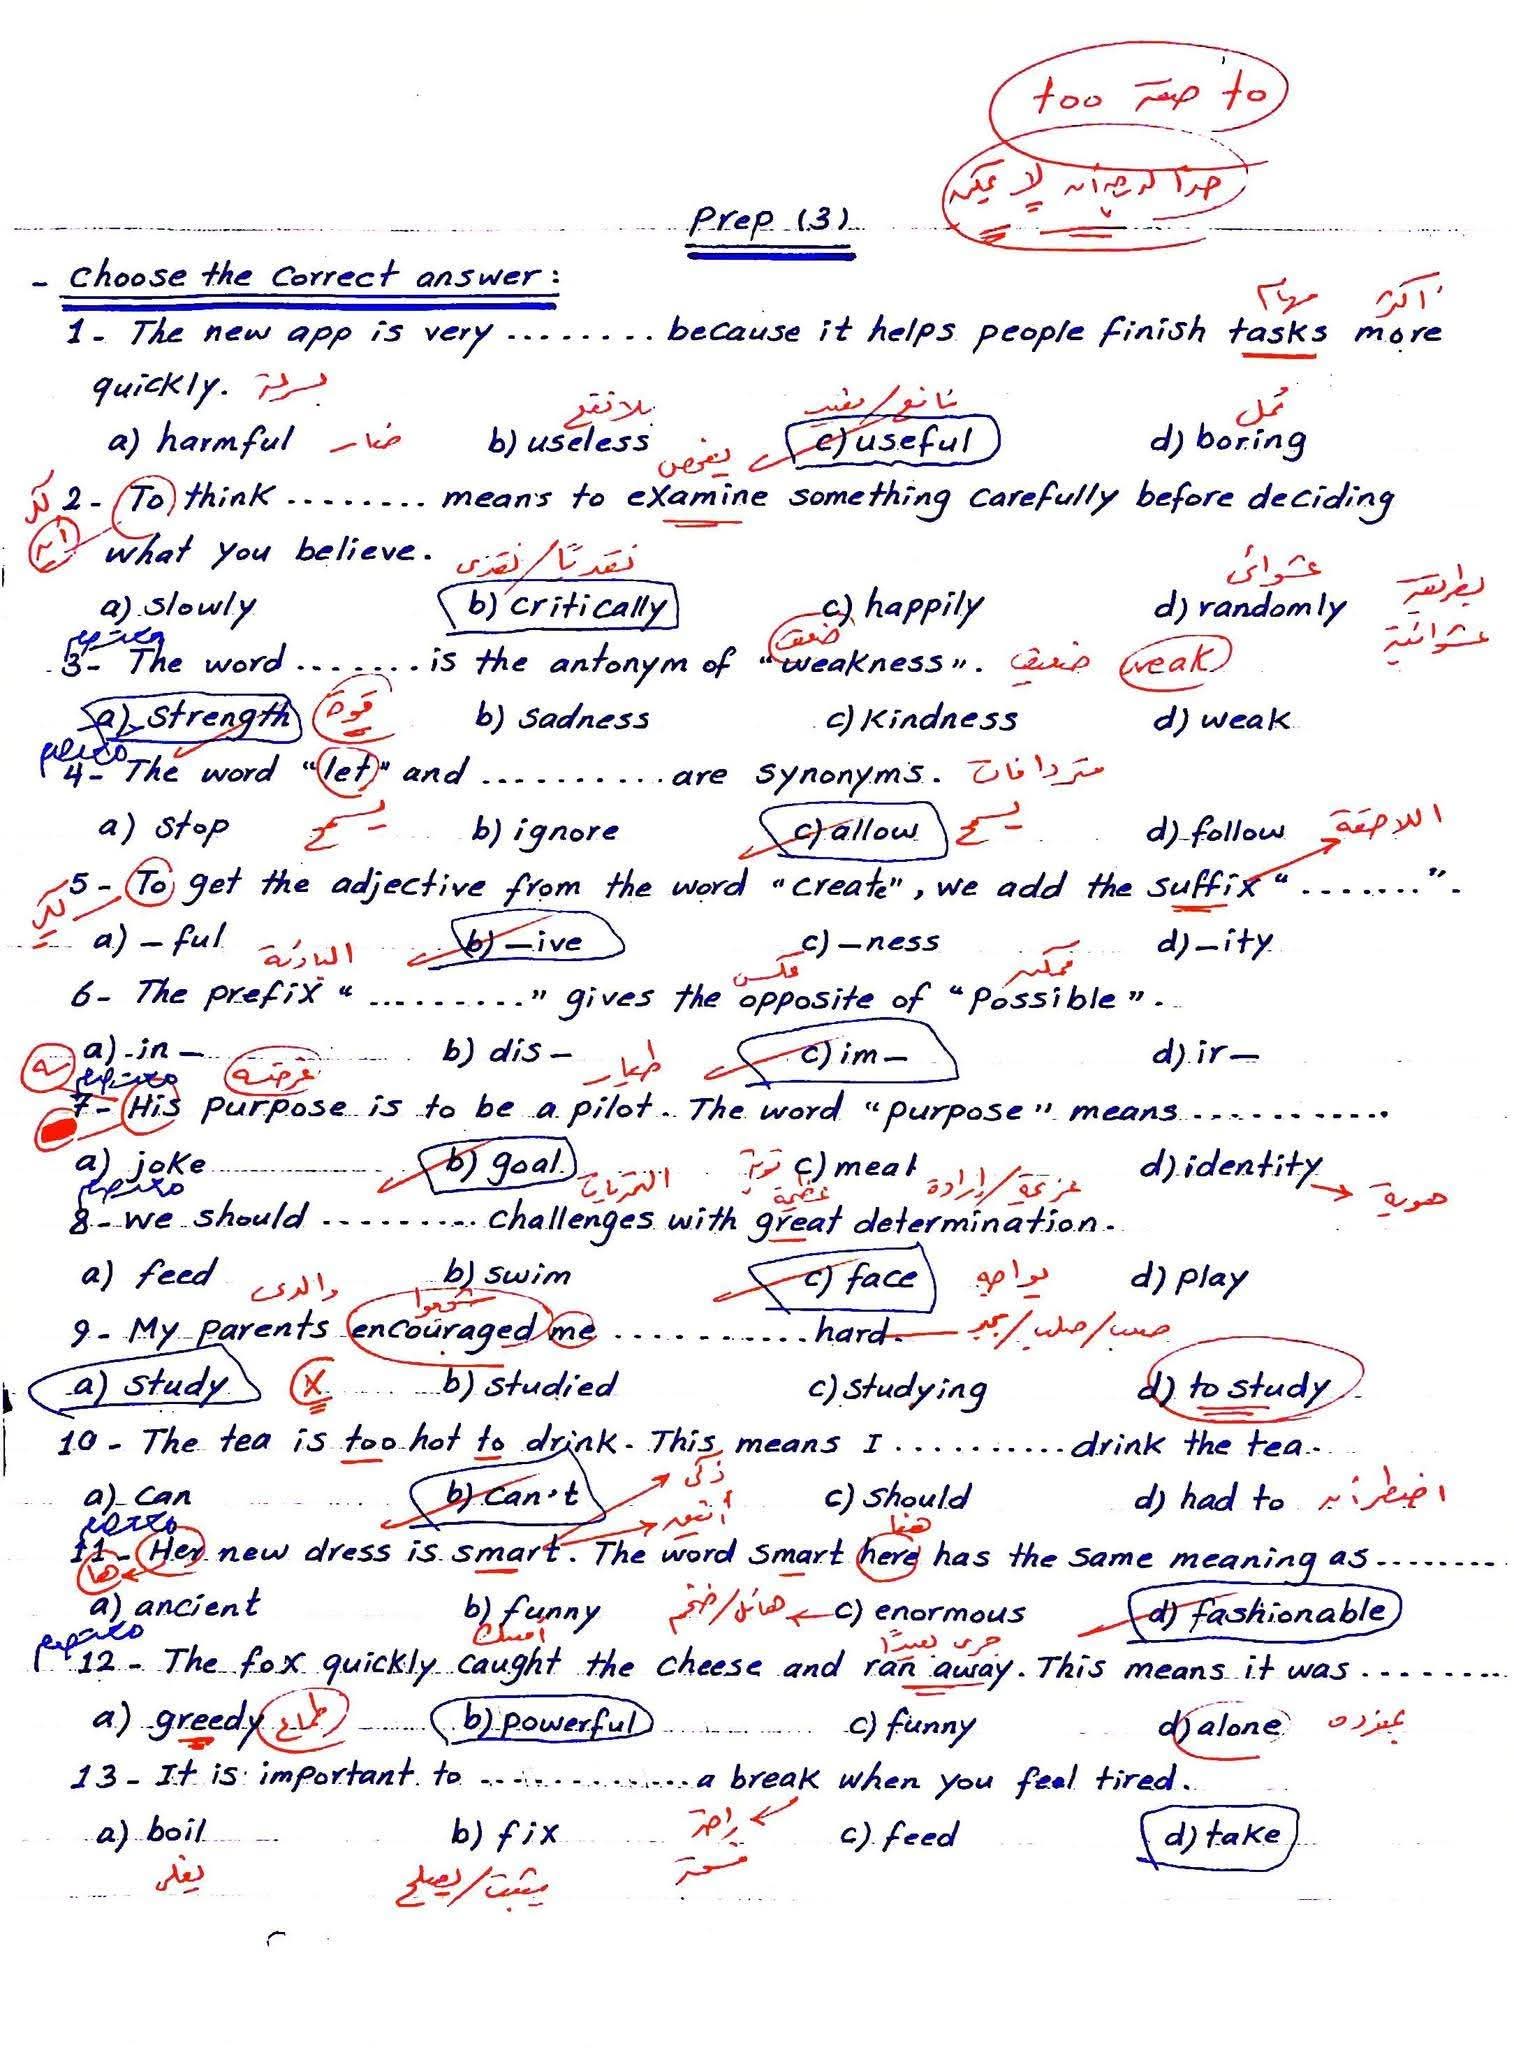 too صفة to
جدا لدرجة أنه لا يمكن
Prep (3)
- Choose the Correct answer:
مهام أكثر
1- The new app is very ........ because it helps people finish tasks more
quickly. بسرعة
بلا نفع نافع/مفيد ممل
a) harmful ضار b) useless c) useful d) boring
يفحص
2- To think ........ means to examine something carefully before deciding
what you believe. نقديًا/نقدى
عشوائى بطريقة
a) slowly b) critically c) happily d) randomly
عشوائية
ضعف
3- The word ....... is the antonym of "weakness". ضعيف weak
a) strength قوة b) sadness c) kindness d) weak
4- The word "let" and .......... are synonyms. مترادفات
a) stop يسمح b) ignore c) allow يسمح d) follow اللاحقة
5- To get the adjective from the word "create", we add the suffix ".......".
لكى
a) -ful b) -ive c) -ness d) -ity
البادئة عكس ممكن
6- The prefix "........." gives the opposite of "possible".
a) in- b) dis- c) im- d) ir-
غرضه طيار
7- His purpose is to be a pilot. The word "purpose" means ...........
a) joke b) goal c) meal d) identity هوية
التحديات عظيمة عزيمة/إرادة
8- we should ......... challenges with great determination.
a) feed b) swim c) face يواجه d) play
والدى شجعوا
9- My parents encouraged me .......... hard. صعب/صلب/بجد
a) study X b) studied c) studying d) to study
10- The tea is too hot to drink. This means I .......... drink the tea.
ذكى
a) can b) can't c) should d) had to اضطر أن
أنيق هنا
11- Her new dress is smart. The word smart here has the same meaning as ........
ها
a) ancient b) funny هائل/ضخم c) enormous d) fashionable
أمسك جرى بعيدًا
12- The fox quickly caught the cheese and ran away. This means it was .........
a) greedy طماع b) powerful c) funny d) alone بمفرده
13- It is important to ............. a break when you feel tired.
a) boil b) fix راحة c) feed d) take
يغلى يثبت/يصلح فسحة